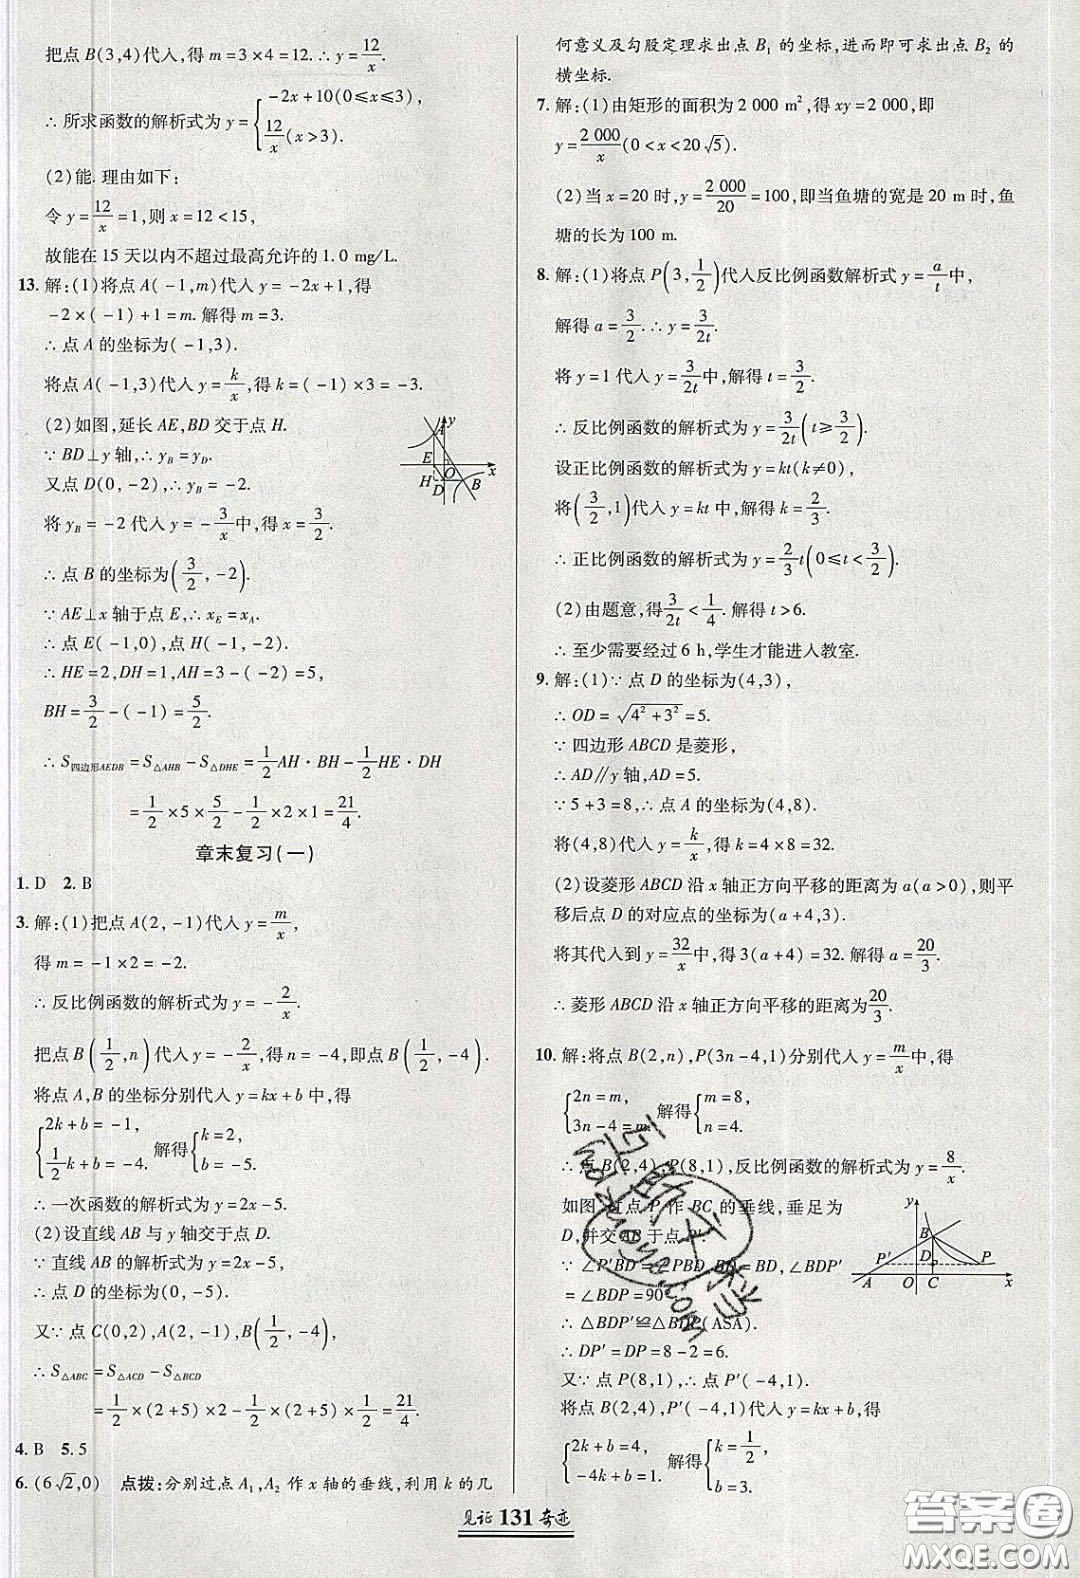 把点 B(3,4)代入,得 m=3×4=12.∴ y=12/x.
∴ 所求函数的解析式为 y={-2x+10(0≤x≤3),
12/x(x>3).
(2)能. 理由如下:
令 y=12/x=1,则 x=12<15,
故能在 15 天以内不超过最高允许的 1.0 mg/L.
13. 解:(1)将点 A(-1,m)代入 y=-2x+1,得
-2×(-1)+1=m. 解得 m=3.
∴ 点 A 的坐标为(-1,3).
将点 A(-1,3)代入 y=k/x,得 k=(-1)×3=-3.
(2)如图,延长 AE,BD 交于点 H.
∵ BD⊥y 轴,∴ y_B=y_D.
又点 D(0,-2),∴ y_B=-2.
将 y_B=-2 代入 y=-3/x中,得 x=3/2.
∴ 点 B 的坐标为(3/2,-2).
∵ AE⊥x 轴于点 E,∴ x_E=x_A.
∴ 点 E(-1,0),点 H(-1,-2).
∴ HE=2,DH=1,AH=3-(-2)=5,
BH=3/2-(-1)=5/2.
∴ S四边形AEDB=S△AHB-S△DHE=1/2AH·BH-1/2HE·DH
=1/2×5×5/2-1/2×2×1=21/4.
y A E O x H D B
章末复习(一)
1. D 2. B
3. 解:(1)把点 A(2,-1)代入 y=m/x,
得 m=-1×2=-2.
∴ 反比例函数的解析式为 y=-2/x.
把点 B(1/2,n)代入 y=-2/x,得 n=-4,即点 B(1/2,-4).
将点 A,B 的坐标分别代入 y=kx+b 中,得
{2k+b=-1,
1/2k+b=-4. 解得{k=2,
b=-5.
∴ 一次函数的解析式为 y=2x-5.
(2)设直线 AB 与 y 轴交于点 D.
∵ 直线 AB 的解析式为 y=2x-5,
∴ 点 D 的坐标为(0,-5).
又∵ 点 C(0,2),A(2,-1),B(1/2,-4),
∴ S△ABC=S△ACD-S△BCD
=1/2×(2+5)×2-1/2×(2+5)×1/2=21/4.
4. B 5. 5
6. (6√2,0) 点拨:分别过点 A₁,A₂ 作 x 轴的垂线,利用 k 的几
何意义及勾股定理求出点 B₁ 的坐标,进而即可求出点 B₂ 的
横坐标.
7. 解:(1)由矩形的面积为 2 000 m²,得 xy=2 000,即
y=2 000/x(0<x<20√5).
(2)当 x=20 时,y=2 000/20=100,即当鱼塘的宽是 20 m 时,鱼
塘的长为 100 m.
8. 解:(1)将点 P(3,1/2)代入反比例函数解析式 y=a/t中,
解得 a=3/2.∴ y=3/2t.
将 y=1 代入 y=3/2t中,解得 t=3/2.
∴ 反比例函数的解析式为 y=3/2t(t≥3/2).
设正比例函数的解析式为 y=kt(k≠0),
将(3/2,1)代入 y=kt 中,解得 k=2/3.
∴ 正比例函数的解析式为 y=2/3t(0≤t<3/2).
(2)由题意,得3/2t<1/4. 解得 t>6.
∴ 至少需要经过 6 h,学生才能进入教室.
9. 解:(1)∵ 点 D 的坐标为(4,3),
∴ OD=√4²+3²=5.
∵ 四边形 ABCD 是菱形,
∴ AD∥y 轴,AD=5.
∵ 5+3=8,∴ 点 A 的坐标为(4,8).
将(4,8)代入 y=k/x,得 k=4×8=32.
(2)设菱形 ABCD 沿 x 轴正方向平移的距离为 a(a>0),则平
移后点 D 的对应点的坐标为(a+4,3).
将其代入到 y=32/x中,得 3(a+4)=32. 解得 a=20/3.
∴ 菱形 ABCD 沿 x 轴正方向平移的距离为20/3.
10. 解:将点 B(2,n),P(3n-4,1)分别代入 y=m/x中,得
{2n=m,
3n-4=m. 解得{m=8,
n=4.
∴ 点 B(2,4),P(8,1),反比例函数的解析式为 y=8/x.
如图,过点 P 作 BC 的垂线,垂足为
D,并交 AB 于点 P′.
∵ ∠P′BD=∠PBD,BD=BD,∠BDP′
=∠BDP=90°,
∴ △BDP′≌△BDP(ASA).
∴ DP′=DP=8-2=6.
又∵ 点 P(8,1),∴ 点 P′(-4,1).
将点 B(2,4),P′(-4,1)代入 y=kx+b,得
{2k+b=4,
-4k+b=1. 解得{k=1/2,
b=3.
y B P′ D P A O C x
见证 131 奇迹
答案圈
MXQE.COM